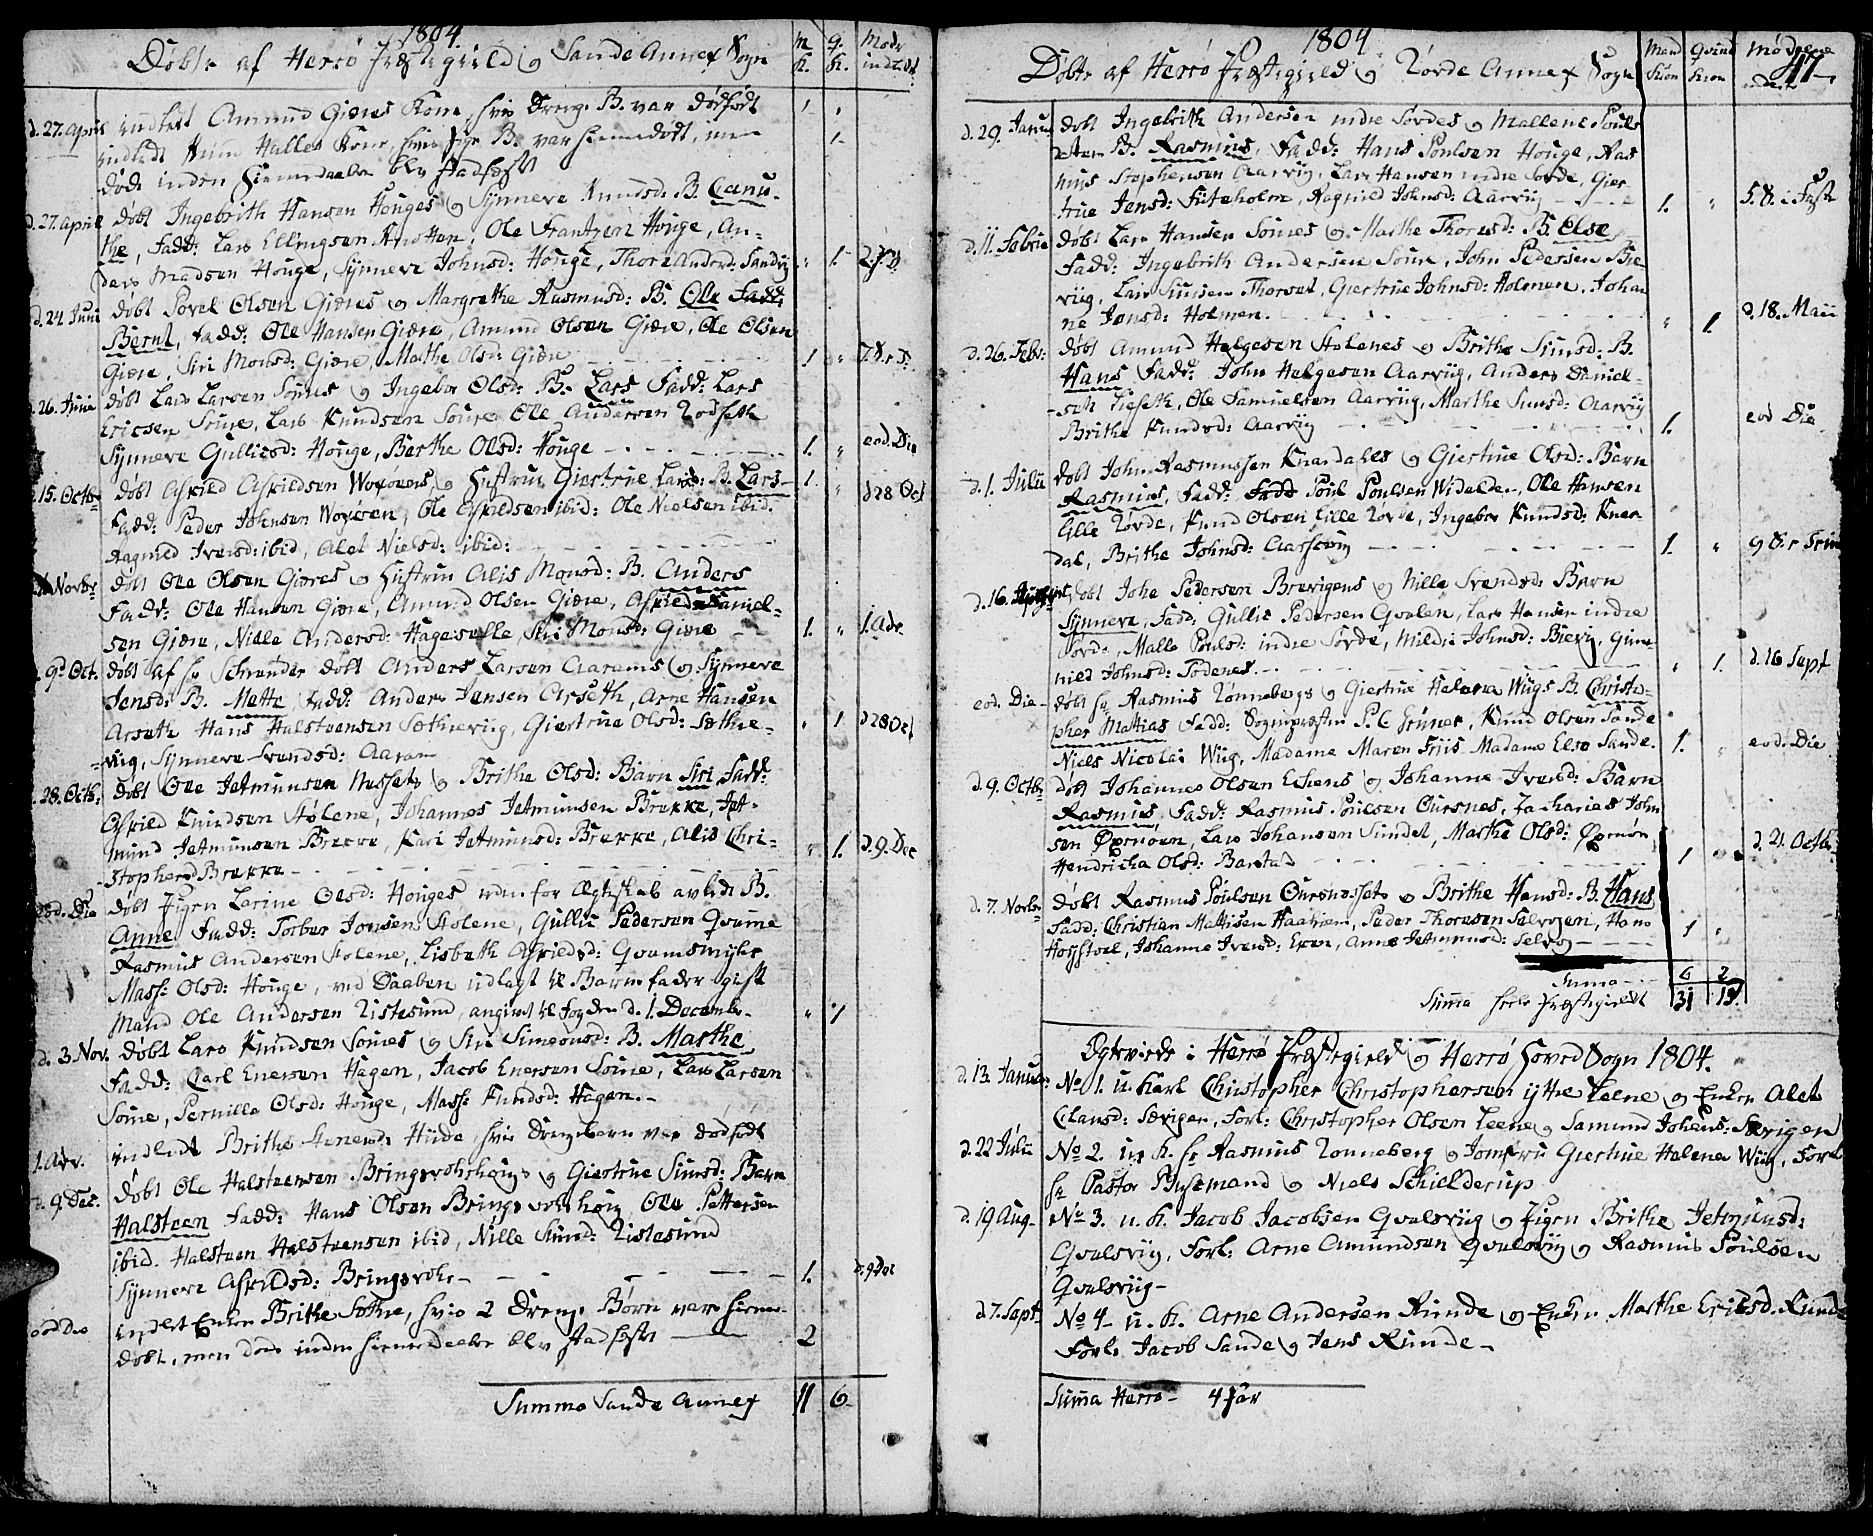 1804.
Døbte af Herrø Præstegield og Sande Annex Sogn
m K. q. K. Modr indledt
d. 27. April indledt Amund Giæres Kone, hvis Drenge B. var dødfødt
indledt Knud Halles Kone, hvis Pige B. var hiemedøbt, men
døde inden hiemedaaben blev stadfæst
d. 27. April døbt Ingebrith Hansen Houges og Synneve Knudsd: B. Canu-
the, Fadd: Lars Ellingsen Knotten, Ole Frantzen Houge, An-
ders Madsen Houge, Synneve Johnsd: Houge, Thore Andersd: Sandvig " 1.
d. 24 Juni døbt Povel Olsen Giæres og Margrethe Rasmusd: B. Ole
Bernt, Fadd: Ole Hansen Giære, Amund Olsen Giære, Ole Olsen
Giære, Siri Monsd: Giære, Mathe Olsd: Giære 1. "
d. 26. Junii døbt Lars Larsen Sones og Ingebor Olsd: B. Lars Fadd: Lars
Ericsen Sone, Lars Knudsen Sone Ole Andersen Rodseth
Synneve Gullicsd: Houge, Berthe Olsd: Houge 1. " eod. Die
d. 15. Octb. døbt Askild Askildsen Woxøens og Hustrue Giertrue Larsd: B. Lars 1. " d 28 Oct
Fadd: Peder Johnsen Woxøen, Ole Askildsen ibid: Ole Nielsen ibid.
Ragnild Iversd: ibid, Alet Nielsd: ibid:
Novbr døbt Ole Olsen Giæres og Hustrue Alis Monsd: B. Anders
Fadd: Ole Hansen Giære, Amund Olsen Giære, Askild Daniel-
sen Giære, Nille Andersd: Hagevolle Siri Monsd: Giære 1. " 1. Adv.
d. 9de Oct. døbt af hr Schrøder døbt Anders Larsen Aarams og Synneve
Jensd: B. Mette Fadd: Anders Jensen Arseth, Arne Hansen
Arseth Hans Halstensen Sætrevig, Giertrue Olsd: Sæthre- " 1 d 28 Oct
viig, Synneve Svendsd: Aaram
d. 28. Octb: døbt Ole Jetmunsen Nessets og Brithe Olsd: Barn Siri Fadd:
Askild Knudsen Stølene, Johannes Jetmunsen Brekke, Jet-
mund Jetmunsen Brekke, Kari Jetmunsd: Brekke, Alis Chri- " 1. d. 9. Dec
stophersd Brekke
eod. Die døbt Pigen Larine Olsd: Houges uden for Ægteskab avlede B.
Anne Fadd: Torber Jonsen Stolene, Gullic Pedersen Qvame
Rasmus Andersen Stolene, Lisbeth Askildsd: Qvamsmyhr
Mass: Olsd: Houge, ved Daaben udlagt til Barnefader gift
Mand Ole Andersen Ristesund, angivet til Fogden d. 1. Decembr. " 1
d. 3. Nov. døbt Lars Knudsen Sones og Siri Simeonsd: B. Marthe
Fadd: Carl Enersen Hagen, Jacob Enersen Sone, Lars Larsen
Sone, Pernille Olsd: Houge, Mass: Knudsd: Hagen.
1. Adv. indledt Brithe Hide, hvis Drengebarn var dødfødt
d. 9. Dec. døbt Ole Halstensen Bringsvohrhougs og Giertrue Simsd: Barn
Halsteen Fadd: Hans Olsen Bringsvohrhoug Ole Pettersen
ibid. Halsteen Halsteensen ibid, Nille Ristesund
Synneve Askildsd: Bringsvohr 1. d. 9 Dec
eod Die indledt Enken Brithe Sæthre, hvis 2 Drenge Børn vare hieme-
døbt, men døde inden hiemedaaben blev stadfæstet 2
Summa Sande Annex 11 6

1804
Døbte af Herrø Præstegield og Rovde Annex Sogn
Mand Kiøn Qvinde Kiøn mødrene indledt
47
d. 29. Januar døbt Ingebrith Andersen indre Sørdes og Mallene Pouls
dotter B. Rasmus, Fadd: Hans Poulsen Houge, Ras
mus Stephensen Aarvig, Lars Hansen indre Sørde, Gier-
true Jensd: Futeholm, Ragnild Johnsd: Aarviig 1. " 5. S. i Faste
d. 11. Febrii døbt Lars Hansen Soines og Marthe Thoresd: B. Else
Fadd: Ingebrith Andersen Soine, John Pedersen Bie
viig, Lars Simsen Thorset, Giertrue Johnsd: Holmen, Johan
ne Jensd: Holmen. " 1 d. 18. Maii
d. 26. Febr: døbt Amund Helgesen Stølenes og Brithe Simsd: B.
Hans Fadd: John Helgesen Aarviig, Anders Daniel-
sen Liseth, Ole Samuelsen Aarviig, Marthe Simsd: Aarviig
Brithe Knudsd: Aarviig 1. eod Die
d. 1. Julii døbt John Rasmussen Knardahls og Giertrue Olsd: Barn
Rasmus, Fadd: Poul Poulsen Widelde, Ole Hansen
lille Rovde, Knud Olsen lille Rovde, Ingebor Knudsd: Knar-
dal, Brithe Johnsd: Aarsvig 1. "
d. 16. Sept døbt Johe Pedersen Brevigens og Nille Svendsd: Barn
Synneve, Fadd: Gullic Pedersen Qvalen, Lars Hansen indre
Sørde, Malle Poulsd: indre Sørde, Mildri Johnsd: Bieviig, Gun-
nild Johnsd: Todenes. " 1. d. 16 Sept
eod. Die døbt hr Rasmus Rønnebergs og Giertrue Helene Wiigs B. Christo-
pher Mattias Fadd: Sogneprest P. C. Grüner, Knud Olsen Sande
Niels Nicolai Wiig, Madame Maren Friis Madame Else Sande. 1. " eod. Die
d. 9. Octbr døbt Johannes Olsen Exens og Johanne Iversd: Barn
Rasmus, Fadd: Rasmus Poulsen Oursnes, Zacharias John
sen Øxenøen, Lars Johansen Sundet, Marthe Olsd: Øxenøn
Hendricha Olsd: Barstad 1 d. 21. Octb:
d. 7. Novbr døbt Rasmus Poulsen Oursnessets og Brithe Hansd: B. Hans
Fadd: Christian Mathisen Haahiem, Peder Thoresen Selvogen, Hans
Hoystoel, Johanne Iversd: Exen, Anne Jetmunsd: Selvog 1 "
Summa 6 2
Summa hele Præstegieldet 31 15
Ægteviede i Herrø Præstegield og Herrø Hoved Sogn 1804.
d. 13. Januar: No 1. u. Karl Christopher Christophersen yttre Leene og Enken Alet
Elansd: Sævigen, Forl: Christopher Olsen Leene og Samund Johans: Sævigen
d. 22 Julii No 2. u. K. hr Rasmus Rønneberg og Jomfru Giertrue Helene Wiig, Forl
hr Pastor Busemand og Niels Schielderup
d. 19 Aug No 3. u. K. Jacob Jacobsen Qvalsviig og Pigen Brithe Jetmunsd:
Qvalsviig, Forl: Arne Amundsen Qvalsviig og Rasmus Poulsen
Qvalsviig
d 7. Sept No 4 u. K. Arne Andersen Runde og Enken Marthe Ericsd. Runde
Forl: Jacob Sande og Jens Runde
Summa Herrø 4 Par